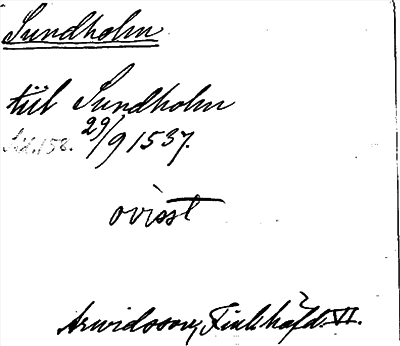 Sundholm
till Sundholm
29/9 1537.
ovisst
Arwidsson, Finl. häfd. VI.